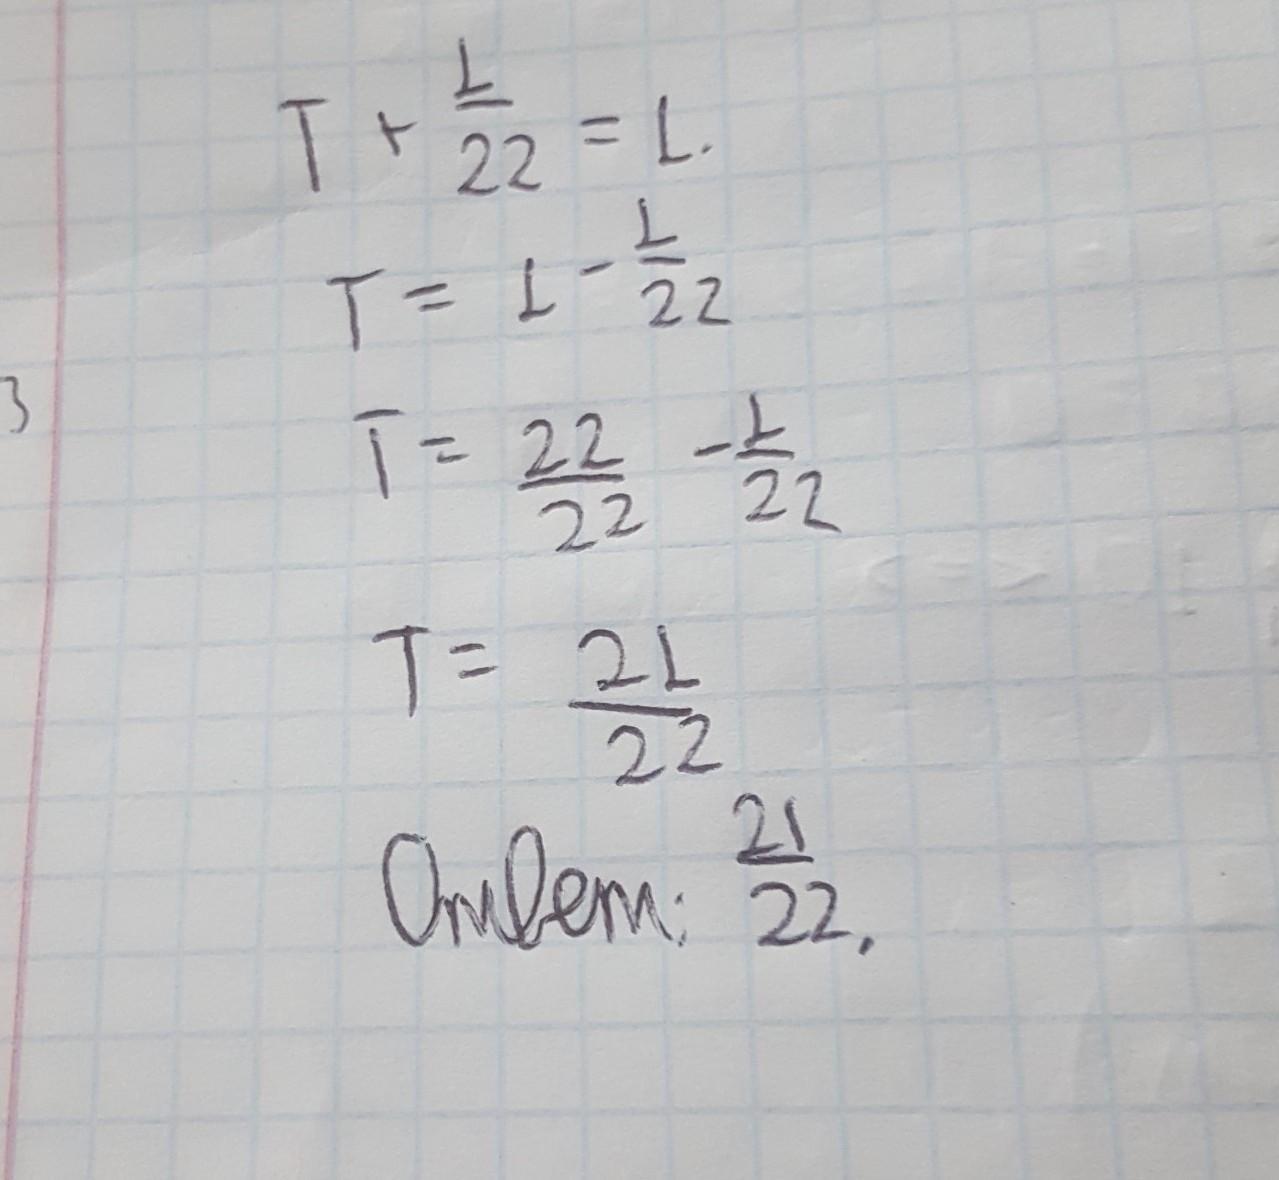 T + 1/22 = 1.
T = 1 - 1/22
3
T = 22/22 - 1/22
T = 21/22
Ответ: 21/22.